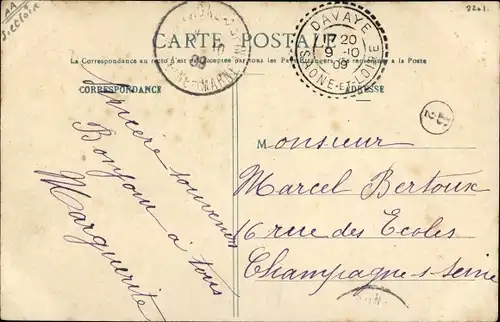 CARTE POSTALE
La Correspondance au recto n'est pas acceptée par tous les Pays Étrangers. Se renseigner à la Poste
CORRESPONDANCE
ADRESSE
DAVAYE
17 20
9 -10
09
SAONE-ET-LOIRE
09
SEINE-ET-MARNE
Sincère souvenir
Bonjour à tous
Marguerite
Monsieur
Marcel Bertoux
16 rue des Ecoles
Champagne s- Seine